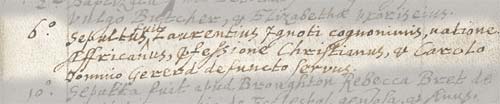 vulgo Butcher, & Elizabethæ
6° Sepultus fuit Laurentius Ignoti cognominis, natione
Affricanus, pfessione Christianus, & Carolo
Domino Gererd defuncto servus.
10° Sepulta fuit apud Broughton Rebecca Bret de